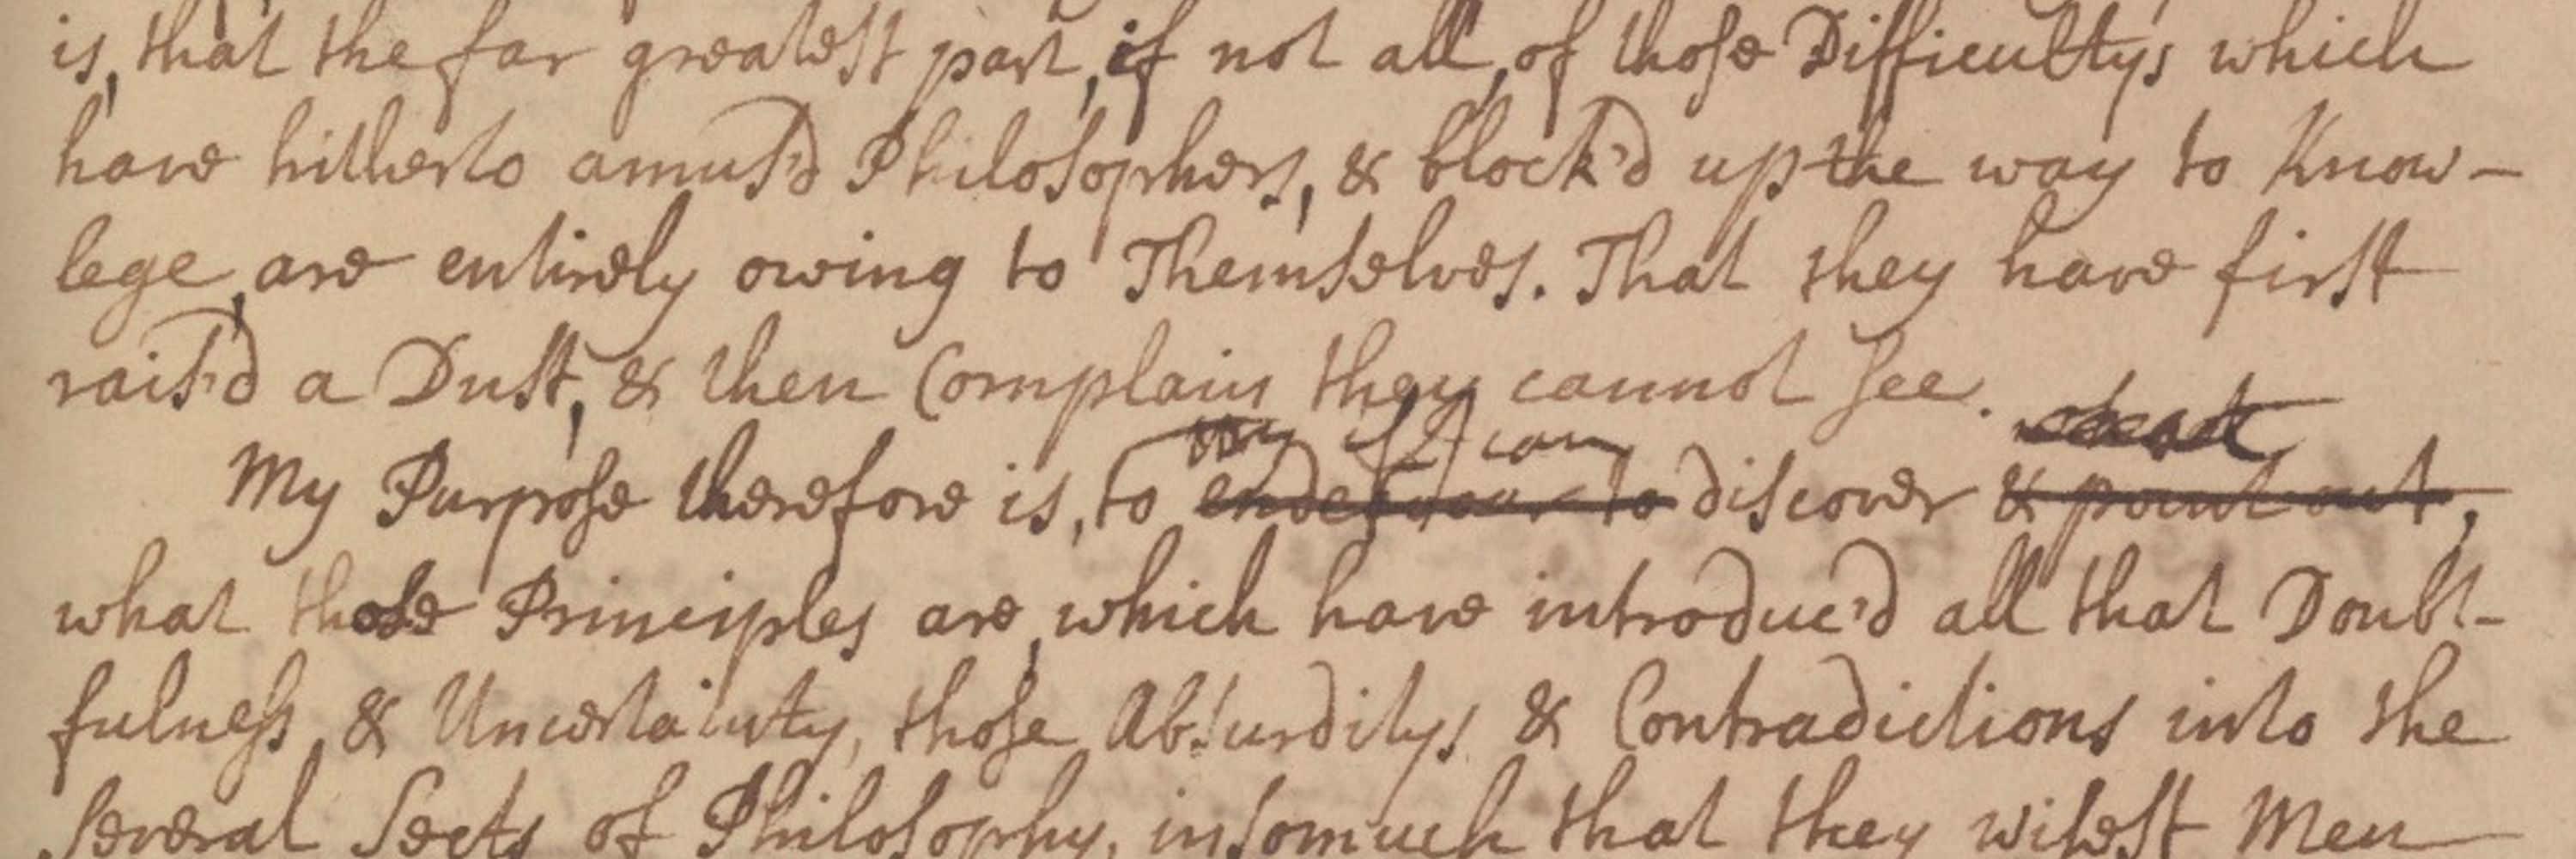 is, that the far greatest part, if not all, of those Difficultys which
have hitherto amus'd Philosophers, & block'd up the way to Know-
lege, are entirely owing to Themselves. That they have first
rais'd a Dust, & then Complain they cannot see.
try if I can
My Purpose therefore is, to endeavour to discover & point out,
what those Principles are, which have introduc'd all that Doubt-
fulness, & Uncertainty, those Absurditys & Contradictions into the
several Sects of Philosophy, insomuch that they wisest Men